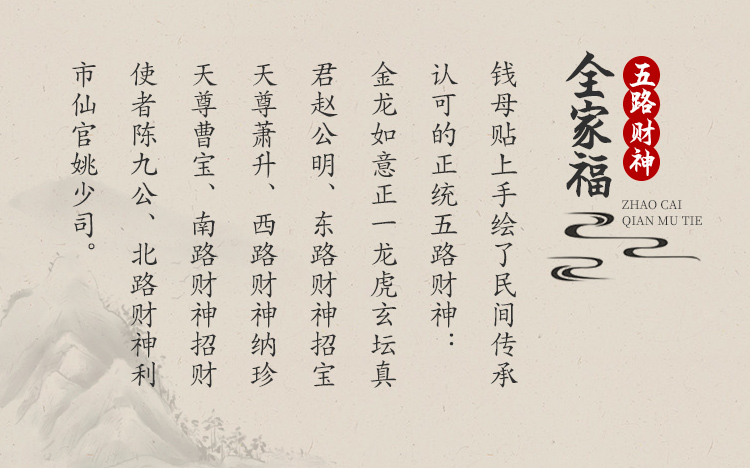 五路财神
全家福
ZHAO CAI
QIAN MU TIE
钱母贴上手绘了民间传承
认可的正统五路财神：
金龙如意正一龙虎玄坛真
君赵公明、东路财神招宝
天尊萧升、西路财神纳珍
天尊曹宝、南路财神招财
使者陈九公、北路财神利
市仙官姚少司。